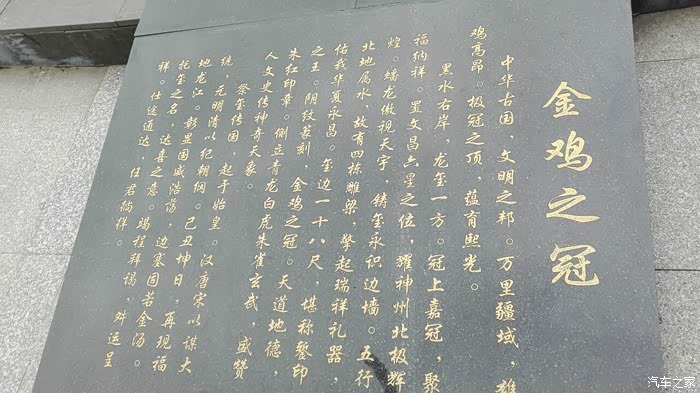 金鸡之冠
中华古国，文明之邦。万里疆域，雄
鸡高昂。极冠之顶，蕴育熙光。
黑水右岸，龙玺一方。冠上嘉冠，聚
福纳祥。置文昌六星之位，耀神州北极辉
煌。蟠龙傲视天宇，铸玺永识边墙。五行
北地属水，故有四栋雕梁，擎起瑞祥礼器，
佑我华夏永昌。玺边一十八尺，堪称鉴印
之王。阴纹篆刻，金鸡之冠。天道地德，
朱红印章。侧立青龙白虎朱雀玄武，盛赞
人文史传神奇天象。
玺传国，起于始皇。汉唐宋以谋大
统，元明清以纪朝纲。己丑坤日，再现福
地龙江。彰显国威浩荡，边塞固若金汤。
托玺之名，达喜之意。竭程拜谒，舛运呈
祥。仕途通达，任君徜徉。
汽车之家